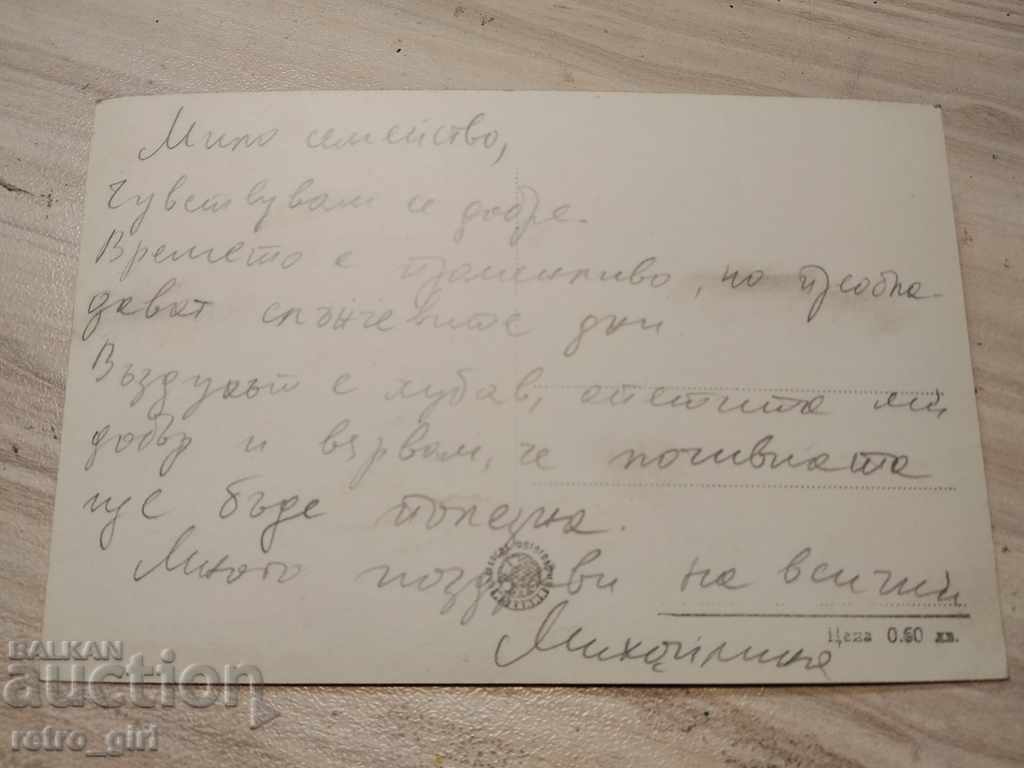 Мило семейство,
Чувствувам се добре.
Времето е променливо, но преобла-
дават слънчевите дни.
Въздухът е хубав, апетита ми
добър и вярвам, че почивката
ще бъде полезна.
Много поздрави на всички
Михайлина
Цена 0.60 лв.
BALKAN
auction
retro_girl